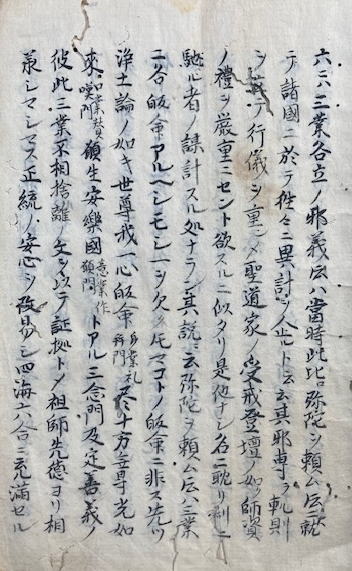 六ニ三業各立ノ邪義云ハ當時此比弥陀ヲ頼ム云ニ就
テ諸國ニ於テ往々ニ異計ヲ企ルト云云其邪專ラ軌則
シ テ行儀ヲ重シメ聖道家ノ受戒登壇ノ如ク師資
ノ禮ヲ厳重ニセント欲スルニ似タリ是他ナシ名ニ耽リ利ニ
馳ル者ノ謀計スル処ナラン其説ニ云弥陀ヲ頼ム云ハ三業
ニ各皈命アルヘシモシ一ヲ欠 トモマコトノ皈命ニ非ス先ツ
浄土論ノ如キ世尊我一心皈命身業礼拜門尽十方無导光如
来口業賛嘆門願生安樂國意業作願門トアル三念門及定善義ノ
彼此三業不相捨離ノ文ヲ以テノ証拠トメ祖師先徳ヨリ相
承シマシマス正統ノ安心ヲ改易シ四海六合ニ充満セル